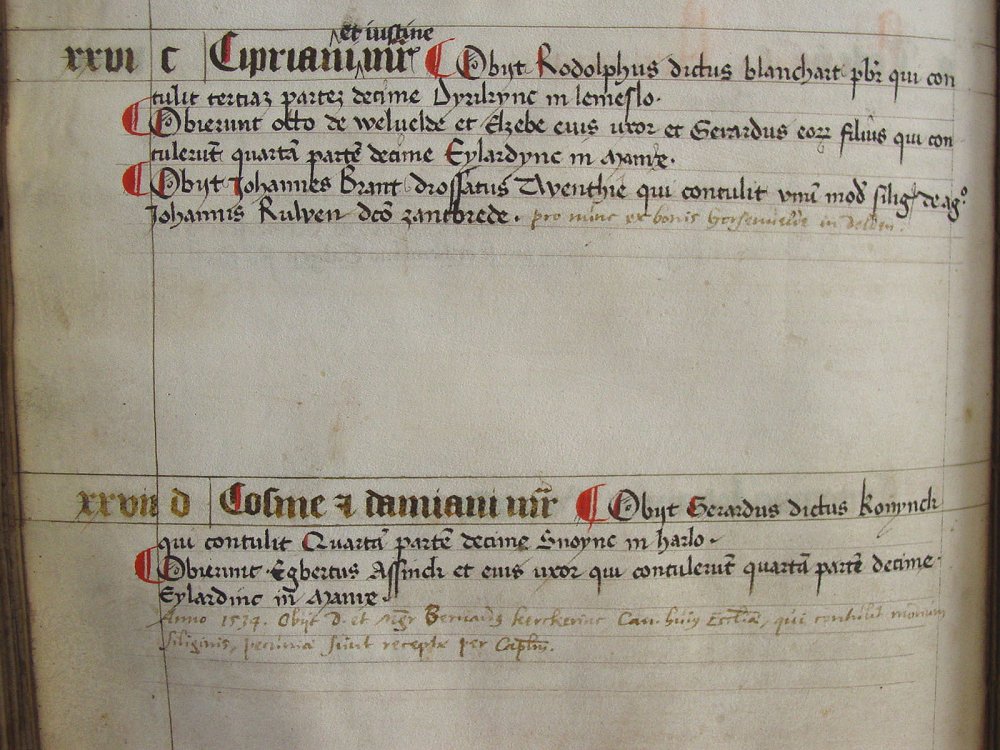 et iustine
xxvi c Cipriani mr̃ Obijt Rodolphus dictus blanchart pbr qui con
tulit tertiaz partez decime Dyrikync in lemeslo.
Obierunt otto de weluelde et Elzebe euis uxor et Gerardus eorꝝ filius qui con
tulerũt quartã partẽ decime Eylardync in
Obijt Johannes Brant drossatus Twenthie qui contulit vnũ mod siliḡ de ag°
Johannis Ruwen dc̃o zantbrede. pro nunc ex bonis in Delden.
xxvii d Cosme ⁊ damiani mr̃r Obijt Gerardus dictus Konynck
qui contulit Quartã partẽ decime Snoync in harlo.
Obierunt Egbertus Assinck et euis uxor qui contulerũt quartã partẽ decime
Eylardinc in
Anno 1534. Obijt D. et Mgr Bernardus kerckerinc Can. huius Ecclie, qui contulit
siliginis, pecunia sunt recepta per Capłm.